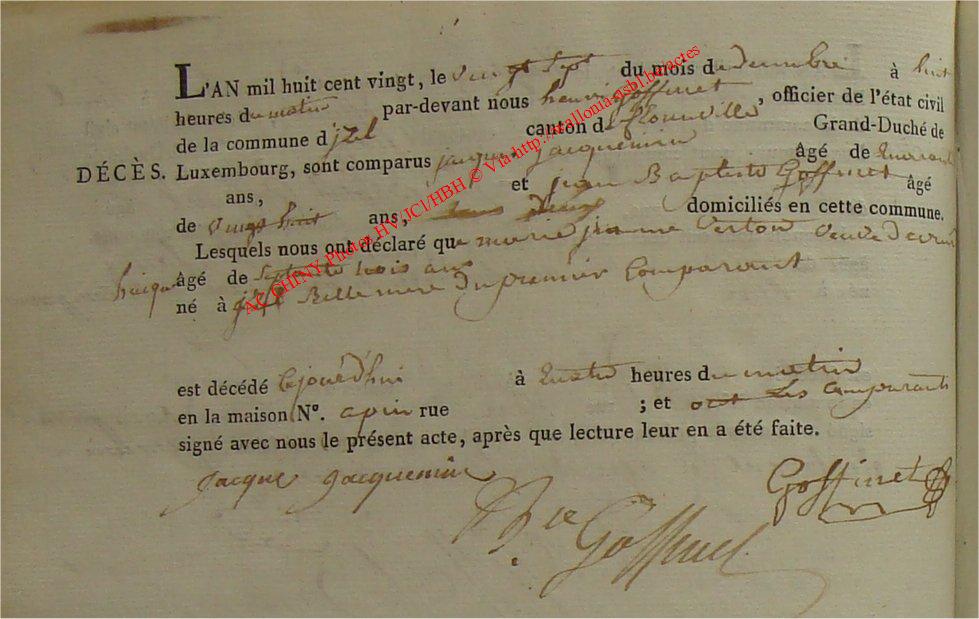 L'AN mil huit cent vingt, le vingt sept du mois de decembre à huit
heures du matin par-devant nous henri Goffinet, officier de l'état civil
de la commune d jzel canton de florenville Grand-Duché de
DÉCÈS. Luxembourg, sont comparus jacque jacquemin âgé de quarante
ans, et jean Baptiste Goffinet âgé
de vingt huit ans, tous deux domiciliés en cette commune.
Lesquels nous ont déclaré que marie jeanne
âgé de septante trois ans
né à jzel Bellemere du premier Comparant
est décédé cejourd'hui à quatre heures du matin
en la maison N°. a pin rue ; et ont les comparants
signé avec nous le présent acte, après que lecture leur en a été faite.
jacque jacquemin
Goffinet
Goffinet
AE CHINY Photos HV/JCl/HBH © Via http://wallonia-asbl.be/actes